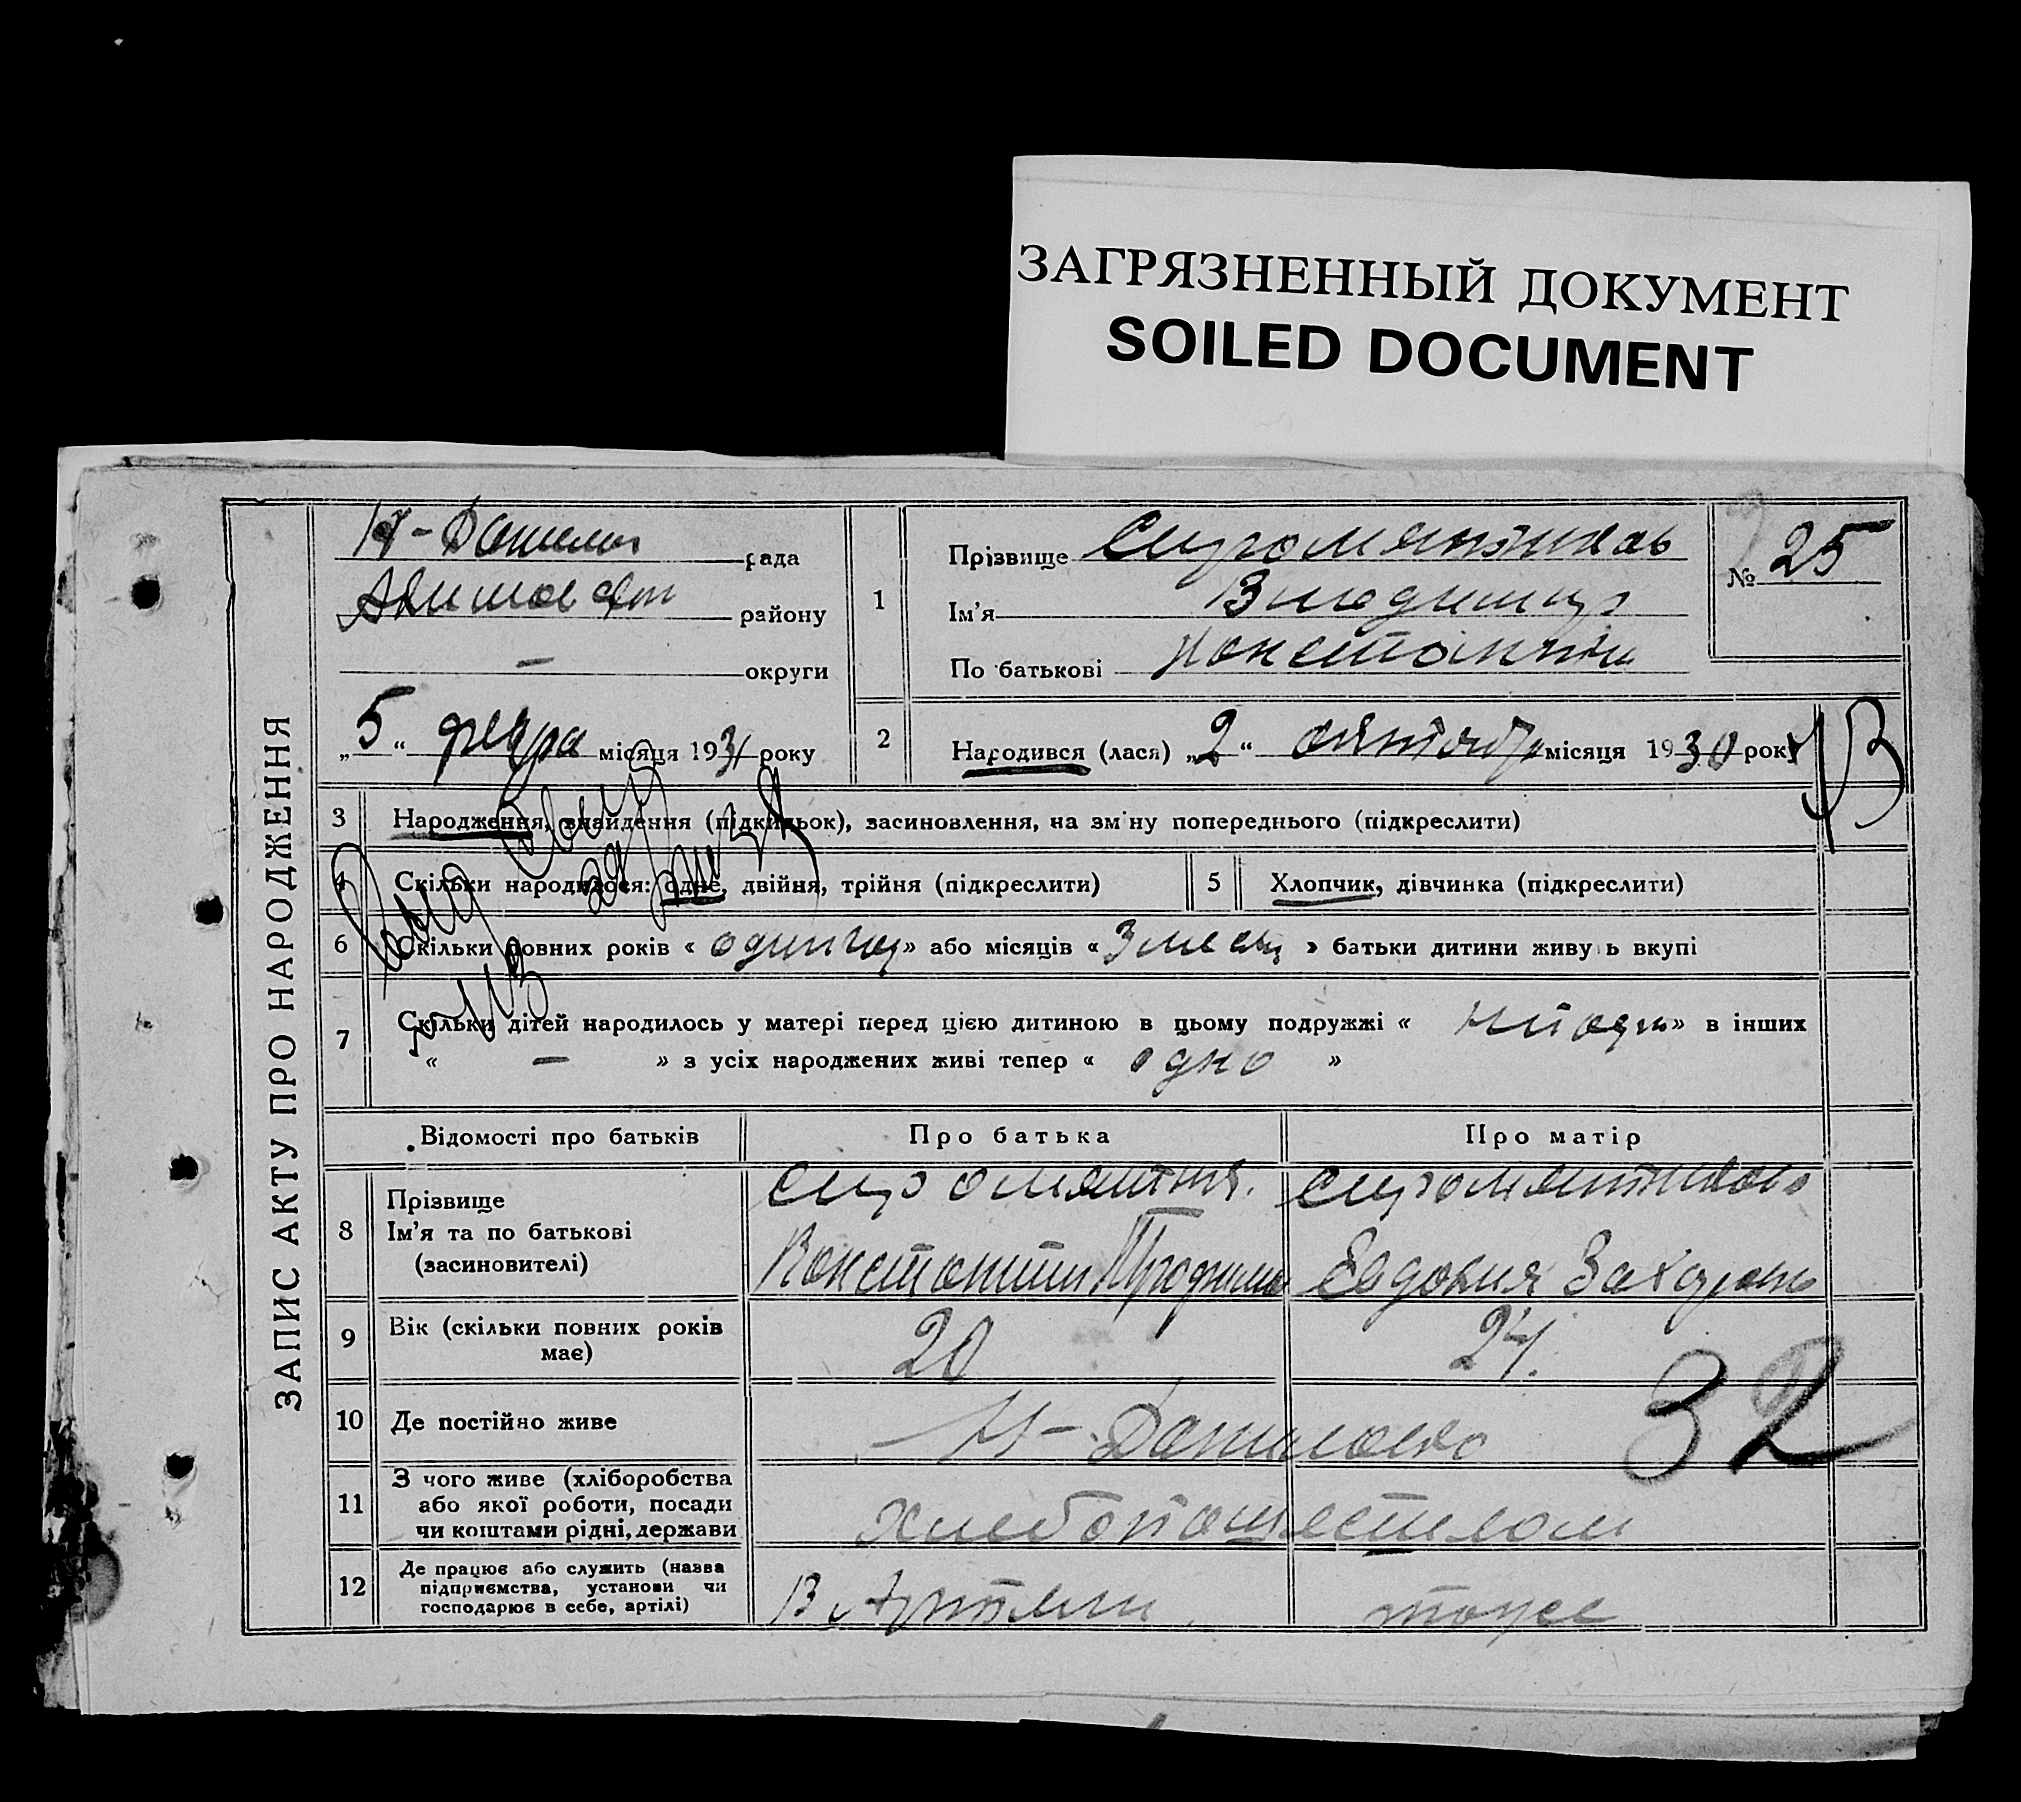 ЗАГРЯЗНЕННЫЙ ДОКУМЕНТ
SOILED DOCUMENT
ЗАПИС АКТУ ПРО НАРОДЖЕННЯ
рада
району
— округи
„5“ місяця 1931 року
1
Прізвище Сыромятников
Ім'я Владимир
По батькові Константин
№ 25
2 Народився (лася) „2“ октября місяця 1930 року
3 Народження, знайдення (підкидьок), засиновлення, на зміну попереднього (підкреслити)
4 Скільки народилося: одне, двійня, трійня (підкреслити) 5 Хлопчик, дівчинка (підкреслити)
6 Скільки повних років « один год » або місяців « 3 месяц » батьки дитини живуть вкупі
7 Скільки дітей народилось у матері перед цією дитиною в цьому подружжі « » в інших
« — » з усіх народжених живі тепер « одно »
Відомості про батьків Про батька Про матір
8 Прізвище
Ім'я та по батькові
(засиновителі)
Сыромятник. Сыромятникова
Константин Трофимов Евдокия Захаровн
9 Вік (скільки повних років
має)
20 24.
10 Де постійно живе Н-Даниловка
32
11 З чого живе (хліборобства
або якої роботи, посади
чи коштами рідні, держави
хлебопашеством
12 Де працює або служить (назва
підприємства, установи чи
господарює в себе, артілі)
В Артели тоже